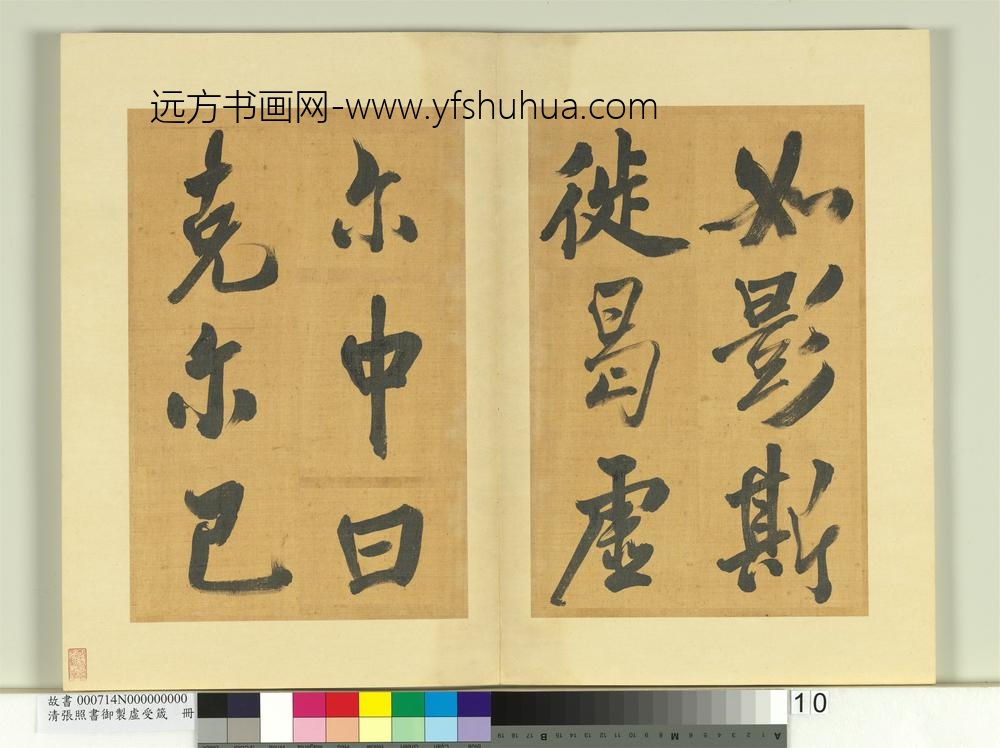 远方书画网-www.yfshuhua.com
如影斯
徙曷虛
尔中曰
克尔己
故書 000714N000000000
清張照書御製虛受箴 冊
10